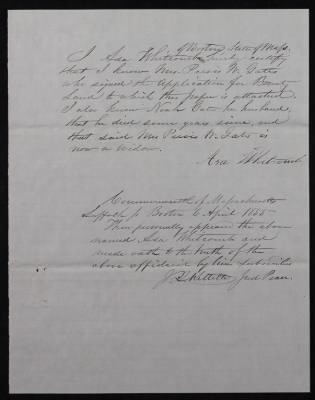 of Boston, State of Mass.
I Asa Whitcomb, certify
that I know Mrs. Persis W. Gates
who signed the Application for Bounty
Land to which this paper is attached
I also knew Noah Gates her husband,
that he died some years since, and
that said Mrs Persis W. Gates is
now a widow.
Asa Whitcomb
Commonwealth of Massachusetts
Suffolk ss Boston 6 April 1855
Then personally appeared the above
named Asa Whitcomb and
made oath to the truth of the
above affidavit by him subscribed
Just Peace